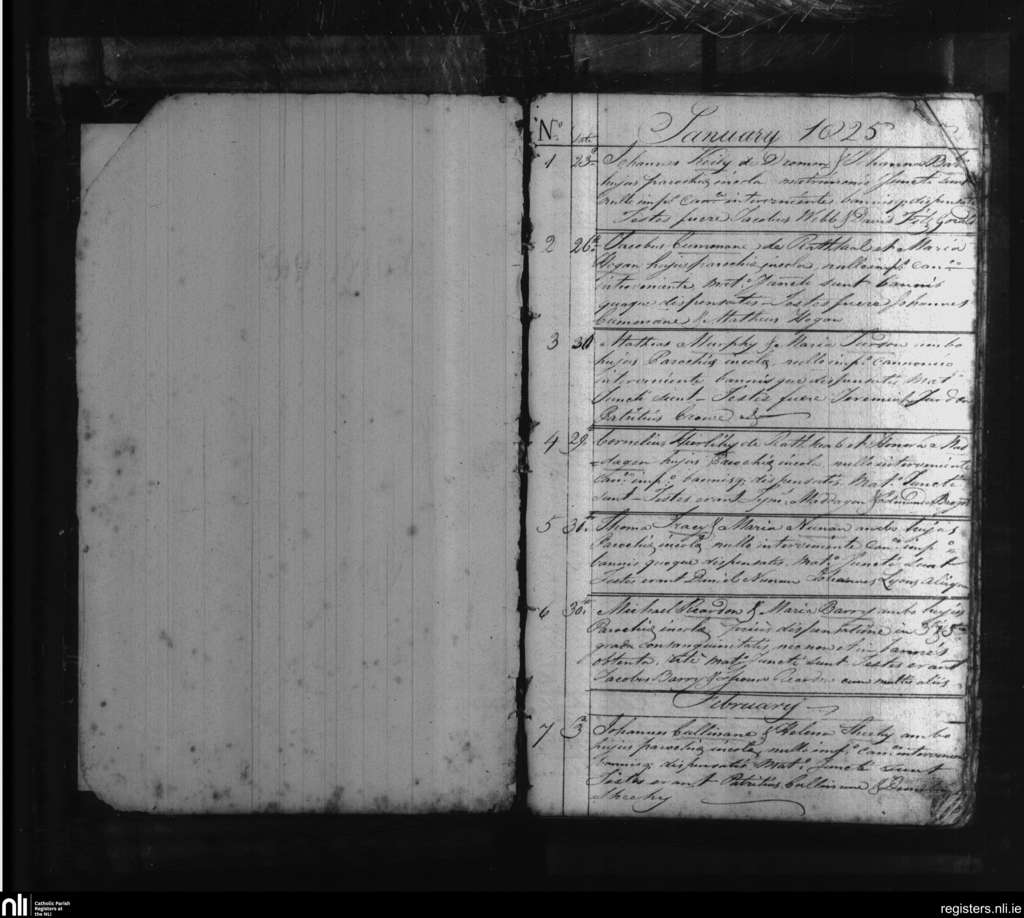 No. Date January 1825
1 23a Johannes Kiely de Dromon &
hujus parochiæ incolæ matrimonio Juncti sunt
nullo impo canco interveniente bannisq dispensatis
Testes fuere Jacobus Webb & David Fitz Gerald
2 26a Jacobus Cummane de Rathkeal et Maria
Hogan hujus parochiæ incolæ nullo impo canco
interveniente mato Juncti sunt bannis
quoque dispensatis - Testes fuere Johannes
Cummane & Matheus Hogan
3 30 Mathias Murphy & Maria ambo
hujus Parochiæ incolæ, nullo impo cannonico
interveniente bannis que dispensatis mato
Juncti sunt - Testes fuere Jeremias
Patritius Crowe
4 29 Cornelius de et Honora Mad
-dagan hujus Parochiæ incolæ nullo interveniente
canco impo bannisq dispensatis Mato Juncti
sunt - Testes erant Maddagan & Edmundus
5 31a Thoma Tracy & Maria Nunan ambo hujus
Parochiæ incolæ nullo interveniente canco impo
bannis quoque dispensatis mato Juncti sunt
Testes erant Daniel Nunan Johannes Lyons aliiq
6 30a Michael Reardon & Maria Barry ambo hujus
Parochiæ incolæ dispensatione in
gradu consanguinitatis, nec non et in bannis
obtenta, rite mato Juncti sunt Testes erant
Jacobus Barry & Reardon cum multis aliis
February
7 3a Johannes Cullinane & Helena Sheehy ambo
hujus parochiæ incolæ, nullo impo canco interveniente
bannisq dispensatis Mato Juncti sunt
Testes erant Patritius Cullinane &
Sheehy
nli Catholic Parish
Registers at
the NLI
registers.nli.ie